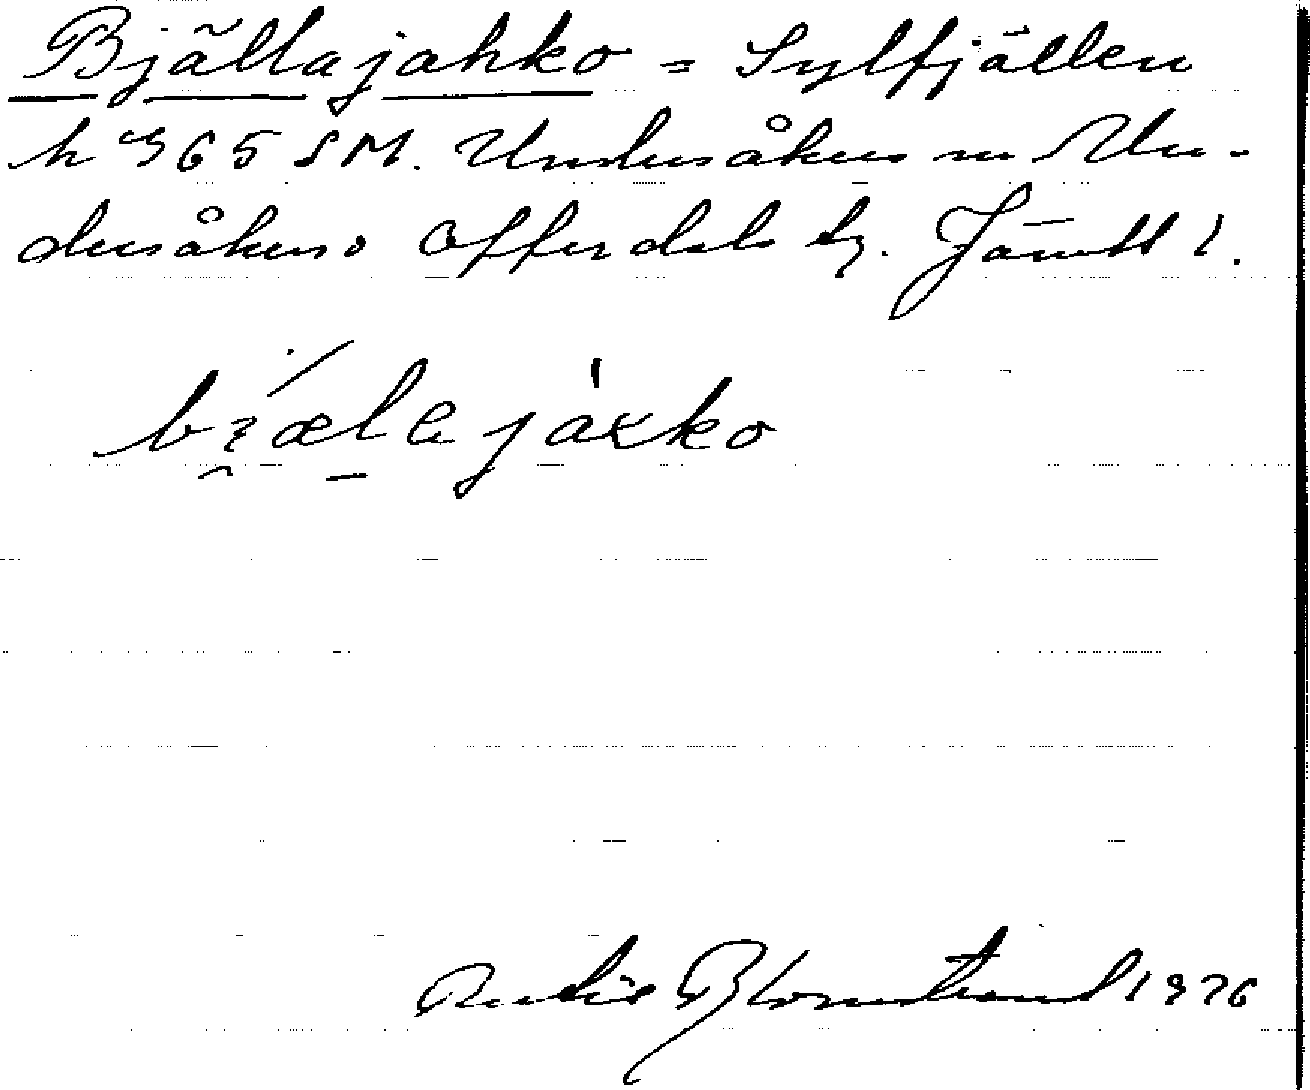 Bjällajahko = Sylfjällen
h 965 SM. Undersåkers sn Un-
dersåkers o Offerdals tg. Jämtl l.
bi̯æ̱lajaxko
Blomstrand 1926